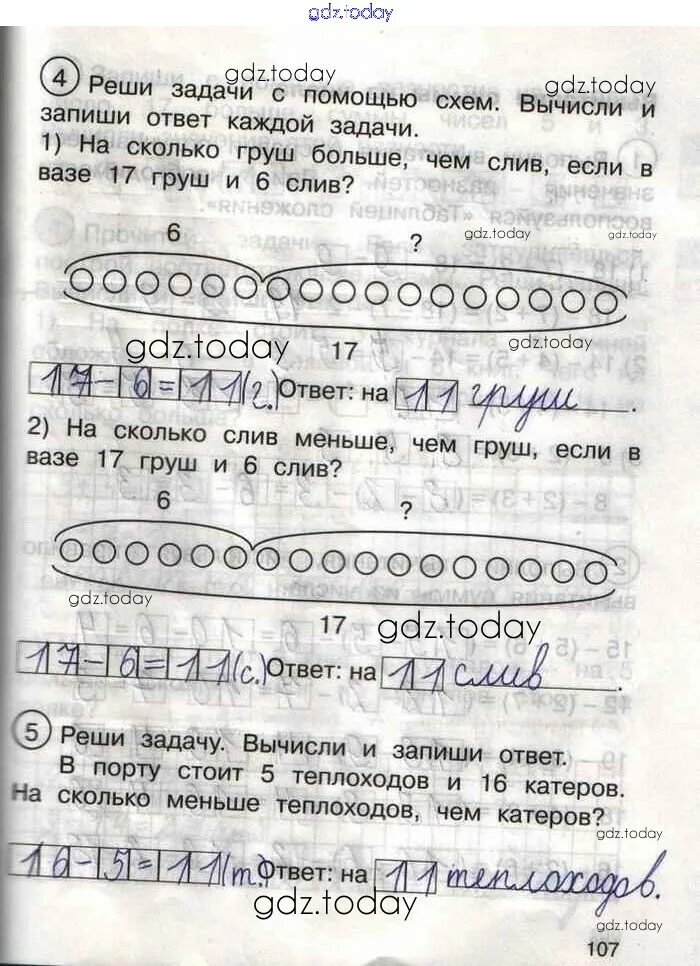 gdz.today
gdz.today
4 Реши задачи с помощью схем. Вычисли и
запиши ответ каждой задачи.
1) На сколько груш больше, чем слив, если в
вазе 17 груш и 6 слив?
6 ? gdz.today
gdz.today gdz.today
17
17-6=11(г.) Ответ: на 11 груш.
2) На сколько слив меньше, чем груш, если в
вазе 17 груш и 6 слив?
6 ?
gdz.today
17 gdz.today
17-6=11(с.) Ответ: на 11 слив.
5 Реши задачу. Вычисли и запиши ответ.
В порту стоит 5 теплоходов и 16 катеров.
На сколько меньше теплоходов, чем катеров?
gdz.today
16-5=11(т.) Ответ: на 11 теплоходов.
gdz.today
gdz.today
107